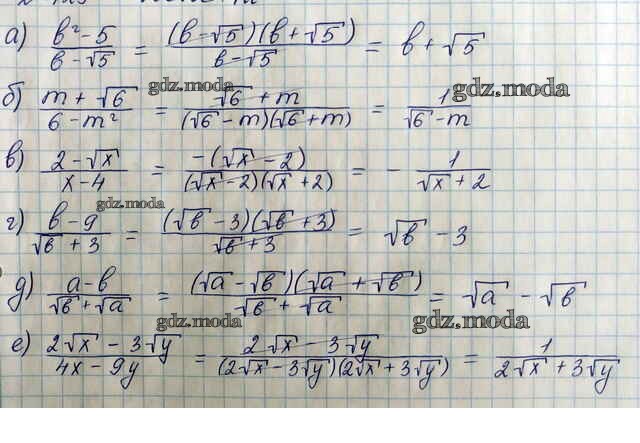 а) (b² - 5)/(b - √5) = ((b - √5)(b + √5))/(b - √5) = b + √5
gdz.moda gdz.moda
б) (m + √6)/(6 - m²) = (√6 + m)/((√6 - m)(√6 + m)) = 1/(√6 - m)
в) (2 - √x)/(x - 4) = (-(√x - 2))/((√x - 2)(√x + 2)) = - 1/(√x + 2)
gdz.moda
г) (b - 9)/(√b + 3) = ((√b - 3)(√b + 3))/(√b + 3) = √b - 3
д) (a - b)/(√b + √a) = ((√a - √b)(√a + √b))/(√b + √a) = √a - √b
gdz.moda gdz.moda
е) (2√x - 3√y)/(4x - 9y) = (2√x - 3√y)/((2√x - 3√y)(2√x + 3√y)) = 1/(2√x + 3√y)